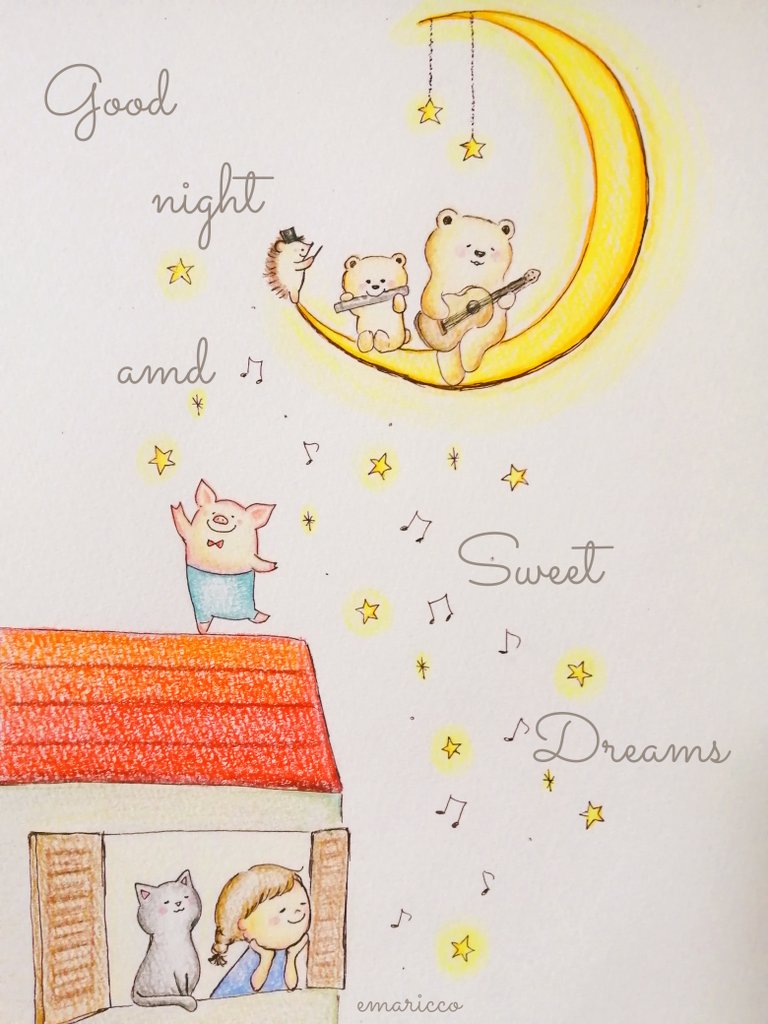 Good
night
amd
Sweet
Dreams
emaricco